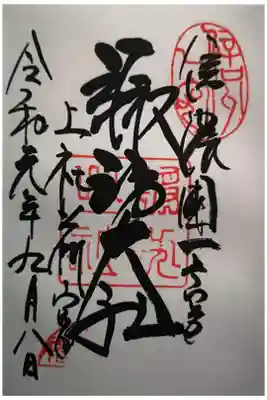 信濃國一之宮
諏訪大社
上社前宮
令和元年九月八日